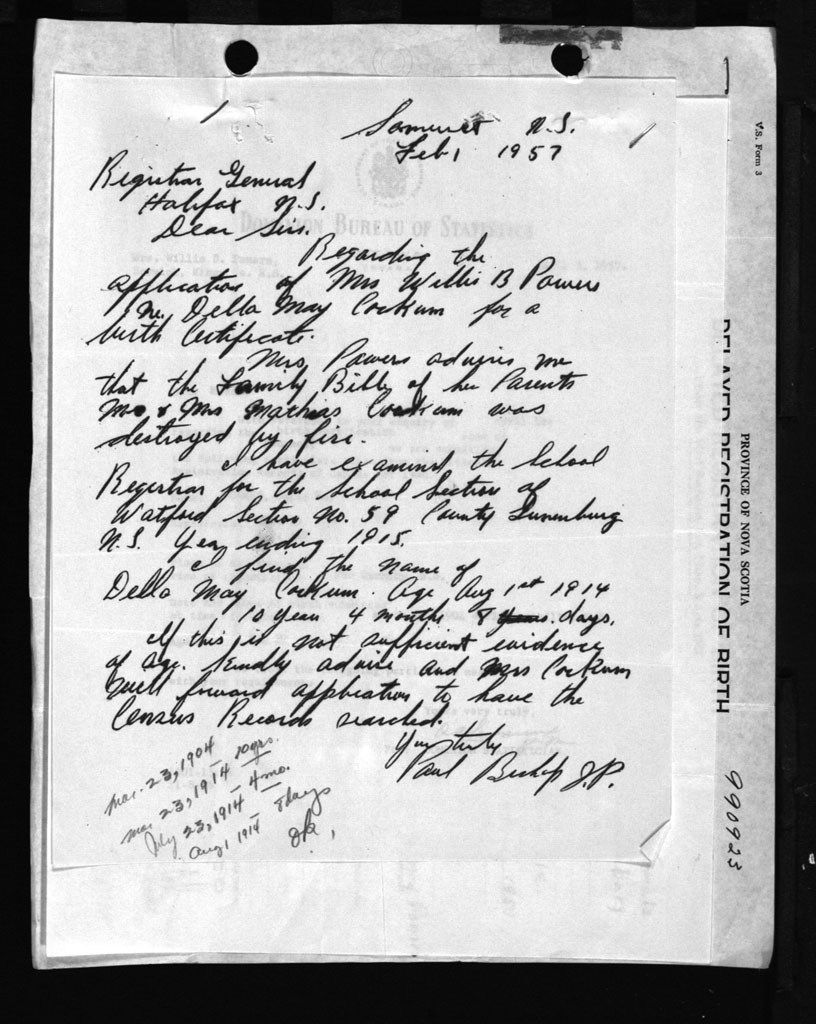 Somerset N.S.
Feb 1 1957
Registrar General
Halifax N.S.
Dear Sirs.
DOMINION BUREAU OF STATISTICS
Mrs. Willis B. Powers,
Regarding the
application of Mrs Willis B Powers
Ne, Della May Corkum for a
birth Certificate.
Mrs Powers advises me
that the Family Bible of her Parents
Mr & Mrs Mathias Corkum was
destroyed by fire.
I have examined the School
Registrar for the School Section of
Watford Section No. 59 County Lunenburg
N.S. Year ending 1915.
I find the name of
Della May Corkum. Age Aug 1st 1914
10 Year 4 months 8 years. days.
If this is not sufficient evidence
of age. kindly advise and Mrs Corkum
will forward application to have the
Census Records searched.
Yours truly
Paul Bishop J.P.
Mar. 23, 1904
Mar 23, 1914 10yrs.
July 23, 1914 4 mo.
Aug 1 1914 8 days
OK,
V.S. Form 3
PROVINCE OF NOVA SCOTIA
DELAYED REGISTRATION OF BIRTH
990923